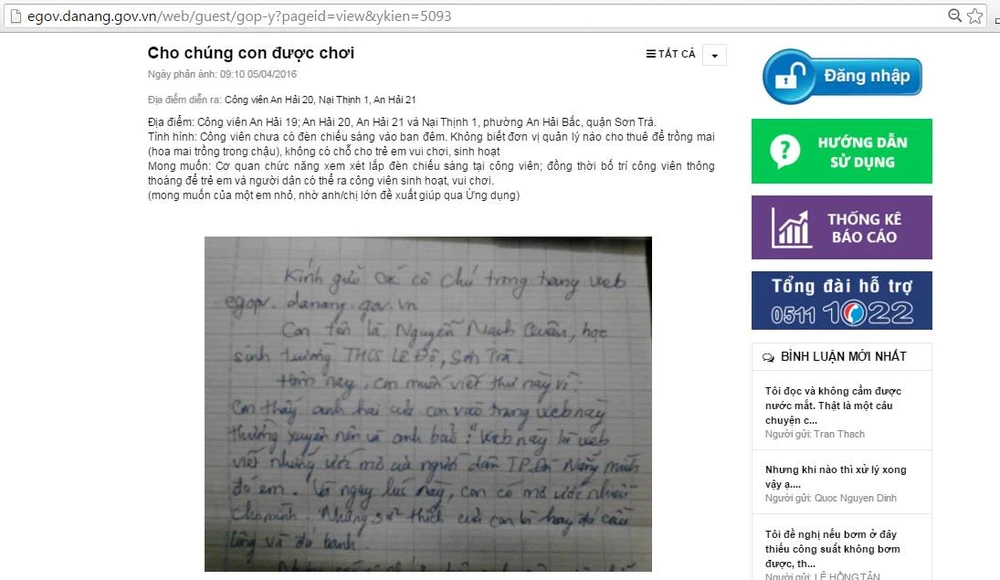 egov.danang.gov.vn/web/guest/gop-y?pageid=view&ykien=5093
Cho chúng con được chơi
TẤT CẢ
Ngày phản ánh: 09:10 05/04/2016
Địa điểm diễn ra: Công viên An Hải 20, Nại Thịnh 1, An Hải 21
Địa điểm: Công viên An Hải 19; An Hải 20, An Hải 21 và Nại Thịnh 1, phường An Hải Bắc, quận Sơn Trà.
Tình hình: Công viên chưa có đèn chiếu sáng vào ban đêm. Không biết đơn vị quản lý nào cho thuê để trồng mai
(hoa mai trồng trong chậu), không có chỗ cho trẻ em vui chơi, sinh hoạt
Mong muốn: Cơ quan chức năng xem xét lắp đèn chiếu sáng tại công viên; đồng thời bố trí công viên thông
thoáng để trẻ em và người dân có thể ra công viên sinh hoạt, vui chơi.
(mong muốn của một em nhỏ, nhờ anh/chị lớn đề xuất giúp qua Ứng dụng)
Kính gửi các cô chú trong trang web
egov.danang.gov.vn
Con tên là Nguyễn Mạnh Quân, học
sinh trường THCS Lê Độ, Sơn Trà.
Hôm nay, con muốn viết thư này vì:
Con thấy anh hai của con vào trang web này
thường xuyên nên và anh bảo: "Web này là web
viết những ước mơ của người dân TP Đà Nẵng mình
đó em. Và ngay lúc này, con có mơ ước nhiều
cho mình. Những sở thích của con là hay đá cầu
lông và đá banh.
Đăng nhập
HƯỚNG DẪN
SỬ DỤNG
THỐNG KÊ
BÁO CÁO
Tổng đài hỗ trợ
0511 1022
BÌNH LUẬN MỚI NHẤT
Tôi đọc và không cầm được
nước mắt. Thật là một câu
chuyện c...
Người gửi: Tran Thach
Nhưng khi nào thì xử lý xong
vậy ạ....
Người gửi: Quoc Nguyen Dinh
Tôi đề nghị nếu bơm ở đây
thiếu công suất không bơm
được, th...
Người gửi: LÊ HỒNG TÂN